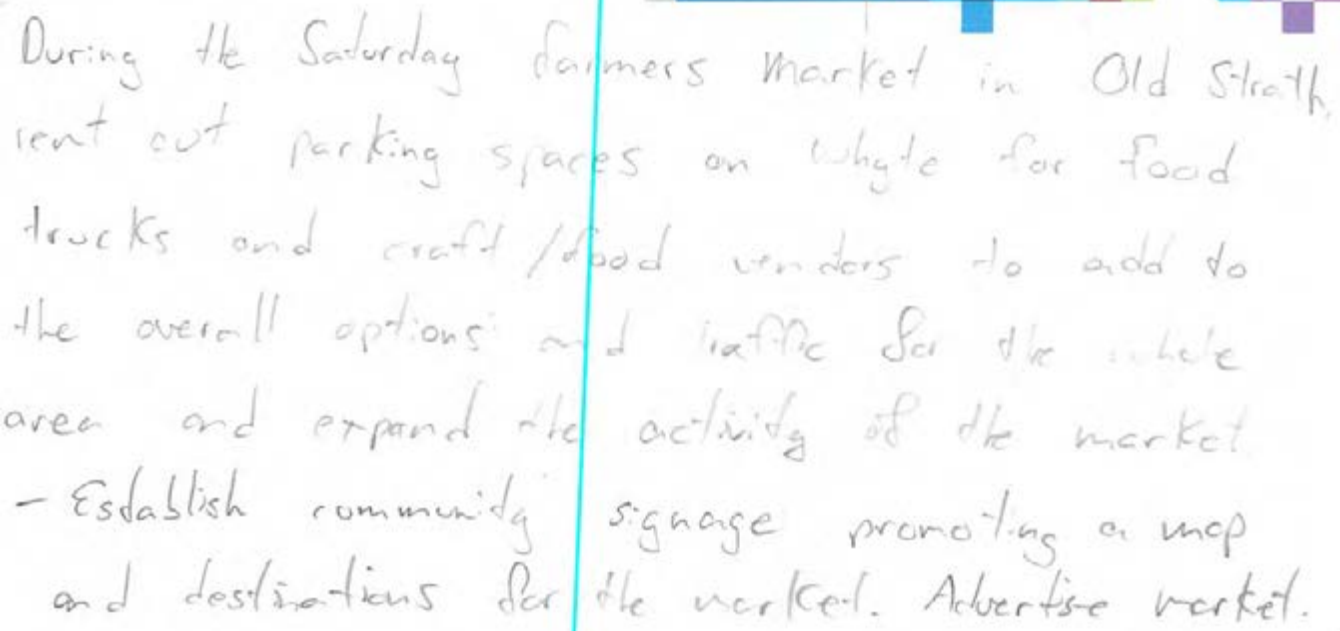 During the Saturday farmers market in Old Strath,
rent out parking spaces on Whyte for food
trucks and craft/food vendors to add to
the overall options and traffic for the whole
area and expand the activity of the market
- Establish community signage promoting a map
and destinations for the market. Advertise market.